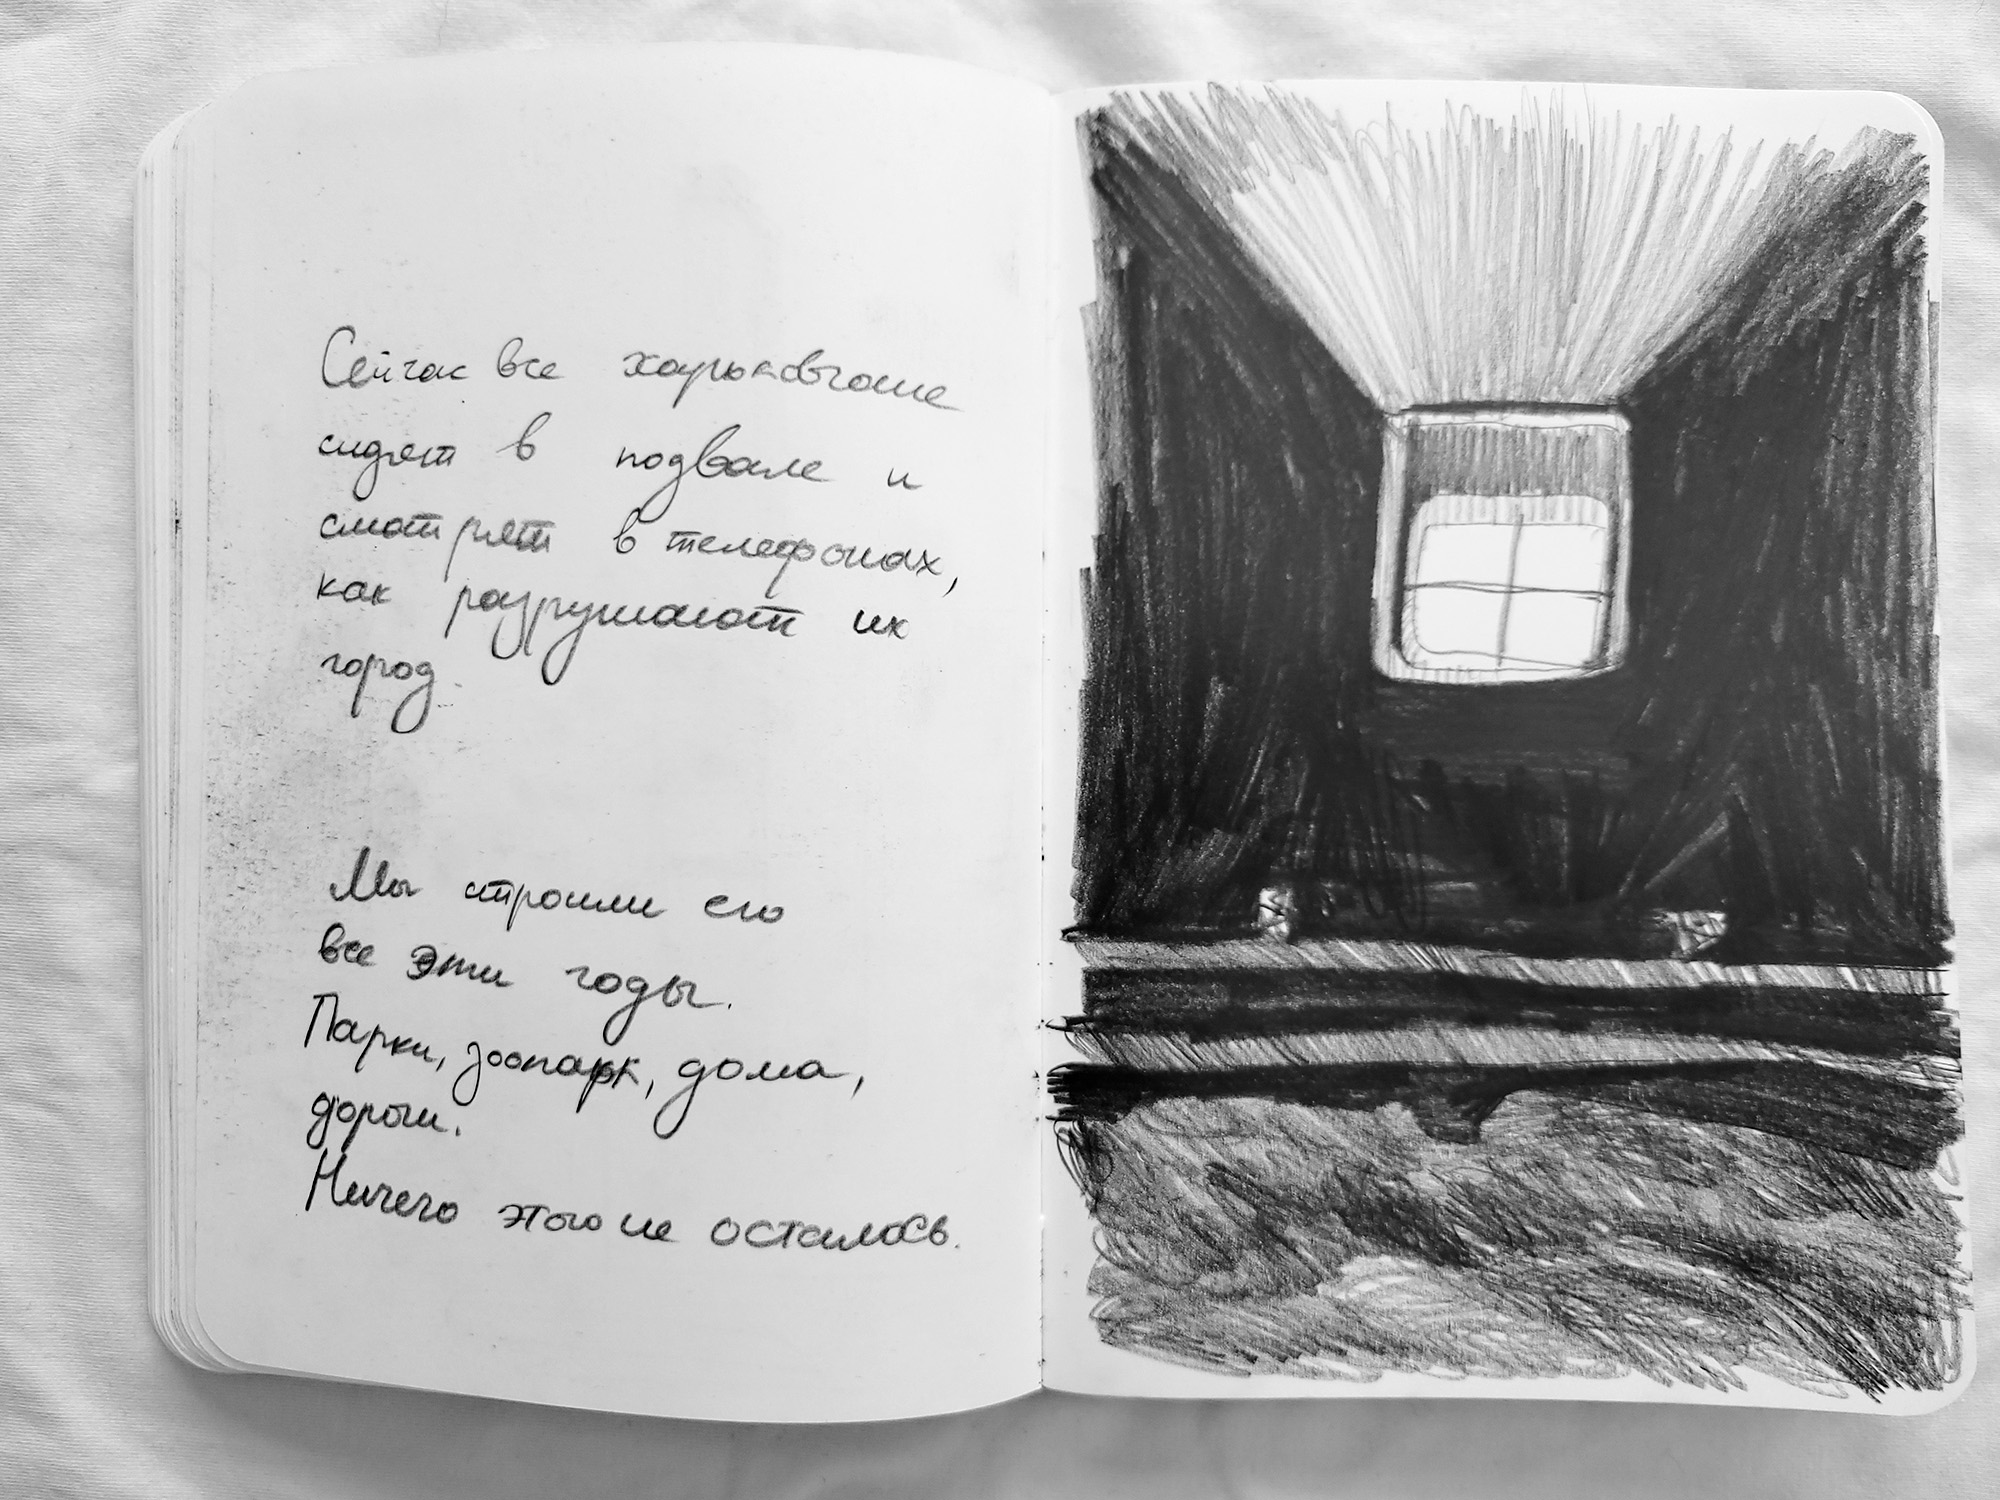 Сейчас все харьковчане
сидят в подвале и
смотрят в телефонах,
как разрушают их
город.
Мы строили его
все эти годы.
Парки, зоопарк, дома,
дороги.
Ничего этого не осталось.